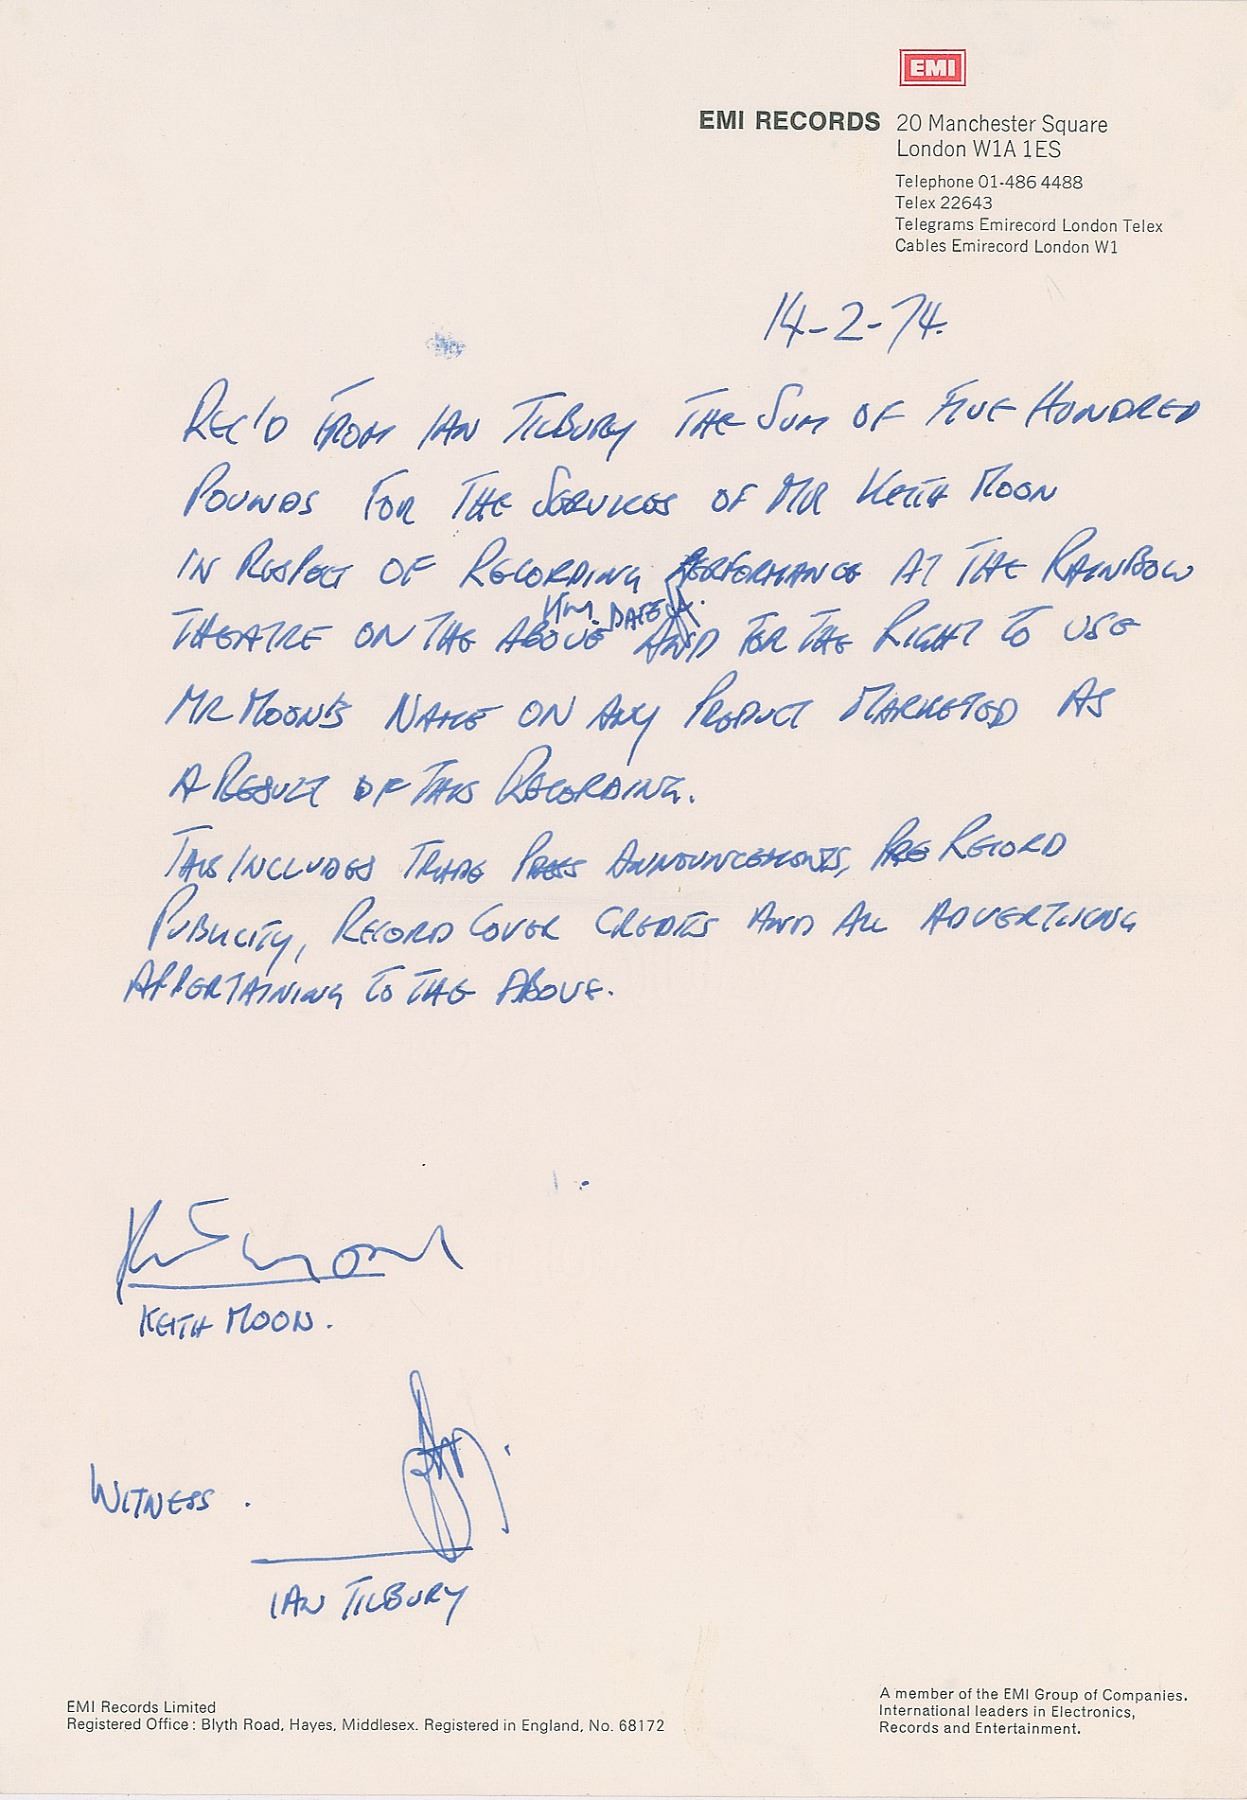 EMI
EMI RECORDS 20 Manchester Square
London W1A 1ES
Telephone 01-486 4488
Telex 22643
Telegrams Emirecord London Telex
Cables Emirecord London W1
14-2-74.
REC'D FROM IAN TILBURY THE SUM OF FIVE HUNDRED
POUNDS FOR THE SERVICES OF MR KEITH MOON
IN RESPECT OF RECORDING PERFORMANCE AT THE RAINBOW
DATE
THEATRE ON THE ABOVE AND FOR THE RIGHT TO USE
MR MOON'S NAME ON ANY PRODUCT MARKETED AS
A RESULT OF THIS RECORDING.
THIS INCLUDES TRADE PRESS ANNOUNCEMENTS, PRE RECORD
PUBLICITY, RECORD COVER CREDITS AND ALL ADVERTISING
APPERTAINING TO THE ABOVE.
Keith Moon
KEITH MOON.
WITNESS.
IAN TILBURY
EMI Records Limited
Registered Office: Blyth Road, Hayes, Middlesex. Registered in England, No. 68172
A member of the EMI Group of Companies.
International leaders in Electronics,
Records and Entertainment.